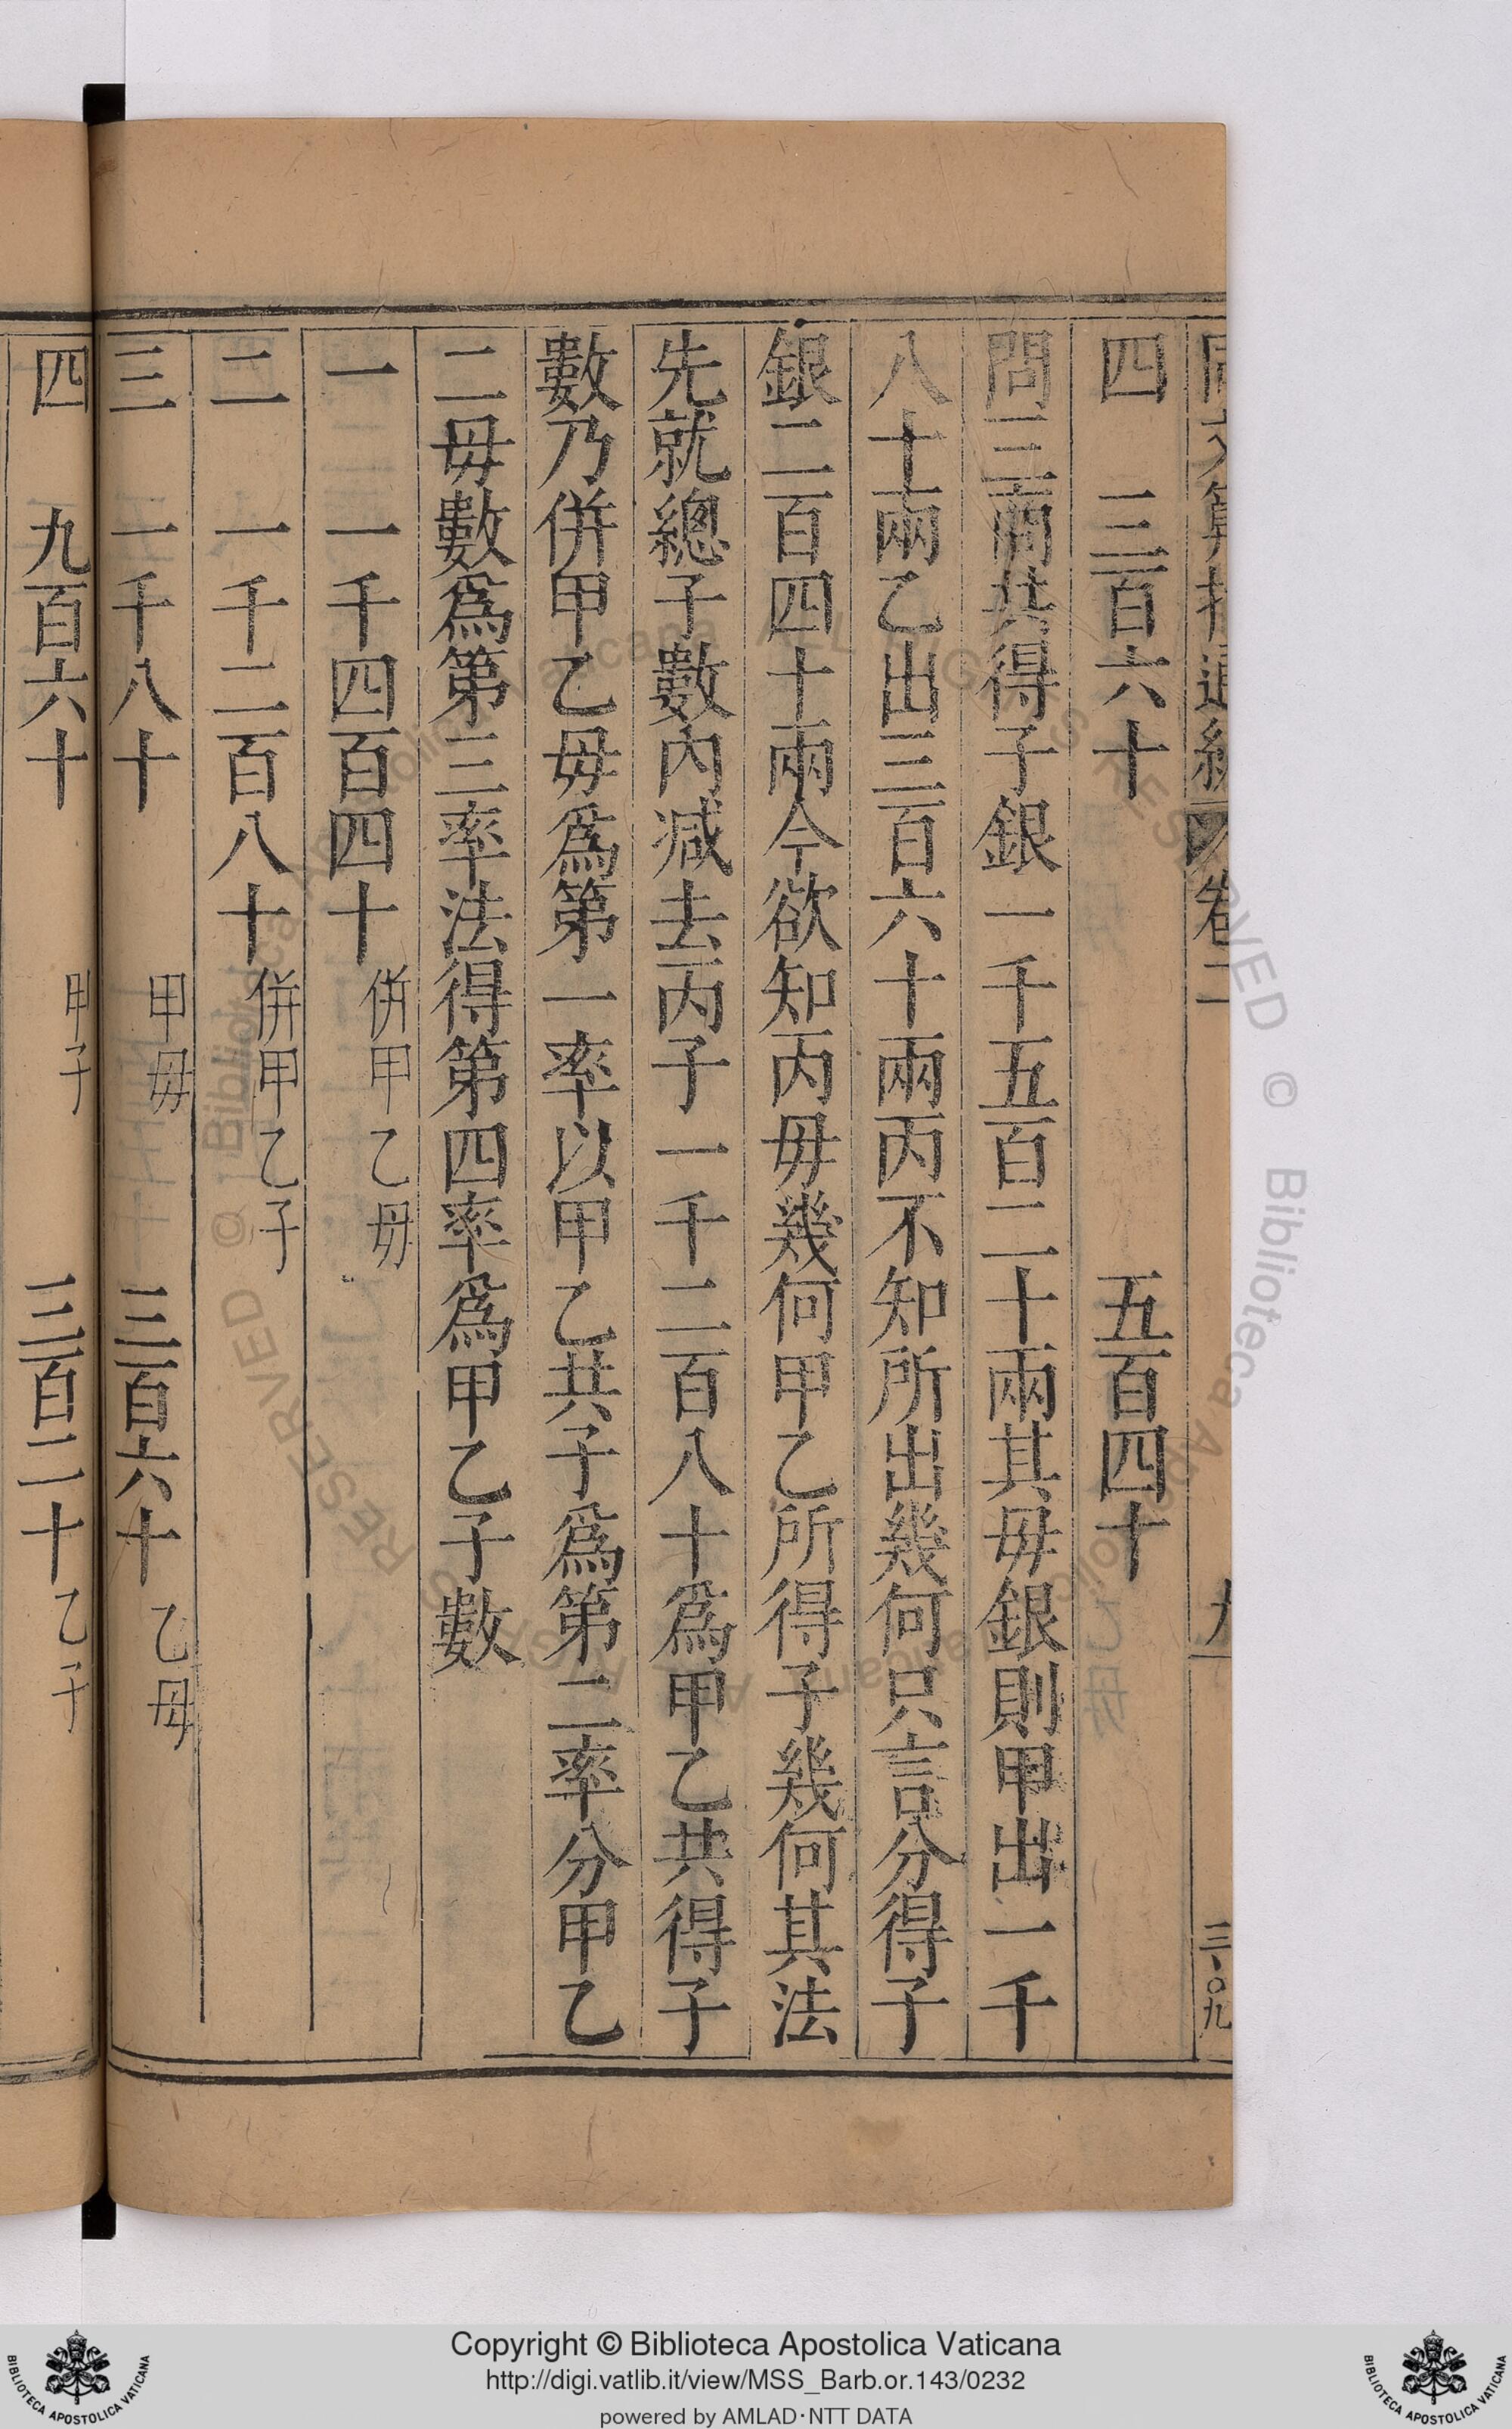 四 三百六十 五百四十
問三商共得子銀一千五百二十兩其毋銀則甲出一千
八十兩乙出三百六十兩丙不知所出幾何只言分得子
銀二百四十兩今欲知丙毋幾何甲乙所得子幾何其法
先就總子數內減去丙子一千二百八十爲甲乙共得子
數乃併甲乙毋爲第一率以甲乙共子爲第二率分甲乙
二毋數爲第三率法得第四率爲甲乙子數
一 一千四百四十 併甲乙毋
二 一千二百八十 併甲乙子
三 一千八十 甲毋 三百六十 乙毋
四 九百六十 甲子 三百二十 乙子
卷二
三〇九
Copyright © Biblioteca Apostolica Vaticana
http://digi.vatlib.it/view/MSS_Barb.or.143/0232
powered by AMLAD·NTT DATA
BIBLIOTECA APOSTOLICA VATICANA
BIBLIOTECA APOSTOLICA VATICANA